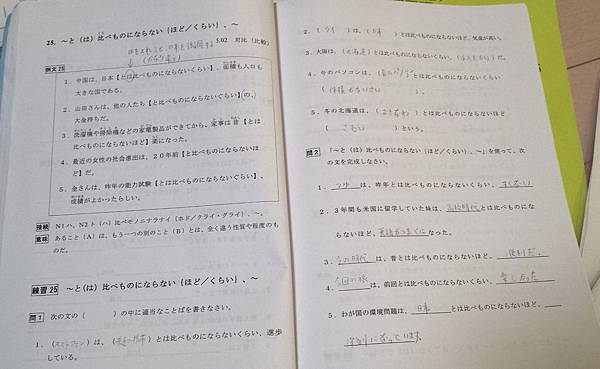 25. ～と（は）比べものにならない（ほど／くらい）、～
5.02 対比（比較）
例文25
1．中国は、日本【とは比べものにならないくらい】、面積も人口も
大きな国である。
2．山田さんは、他の人たち【とは比べものにならないぐらい】（の、
大金持ちだ。
3．洗濯機や掃除機などの家電製品ができてから、家事は昔【とは
比べものにならないほど】楽になった。
4．最近の女性の社会進出は、20年前【とは比べものにならないほ
ど】だ。
5．金さんは、昨年の能力試験【とは比べものにならないぐらい】、
成績がよかったらしい。
接続 N1ハ、N2ト（ハ）比ベモノニナラナイ（ホド／クライ・グライ）、～。
意味 あること（A）は、もう一つの別のこと（B）とは、全く違う性質や程度のも
のだ。
練習25 ～と（は）比べものにならない（ほど／くらい）、～
問1 次の文の（　）の中に適当なことばを書きなさい。
1．（スマートフォン）は、（　）とは比べものにならないくらい、進歩
している。
2．（タイ）は、（日本）とは比べものにならないほど、気温が高い。
3．大阪は、（北海道）とは比べものにならないくらい、（　）だ。
4．今のパソコンは、（昔のパソコン）とは比べものにならないくらい
（　）。
5．冬の北海道は、（　）とは比べものにならないほど
（　）という。
問2 「～と（は）比べものにならない（ほど／くらい）、～」を使って、次
の文を完成しなさい。
1．　は、昨年とは比べものにならないくらい、
2．3年間も米国に留学していた妹は、高校時代とは比べものにな
らないほど、英語がうまくになった。
3．今の時代は、昔とは比べものにならないほど、便利だ。
4．今回の旅は、前回とは比べものにならないくらい、楽しかった
5．わが国の環境問題は、日本とは比べものにならないほど、
深刻になっています